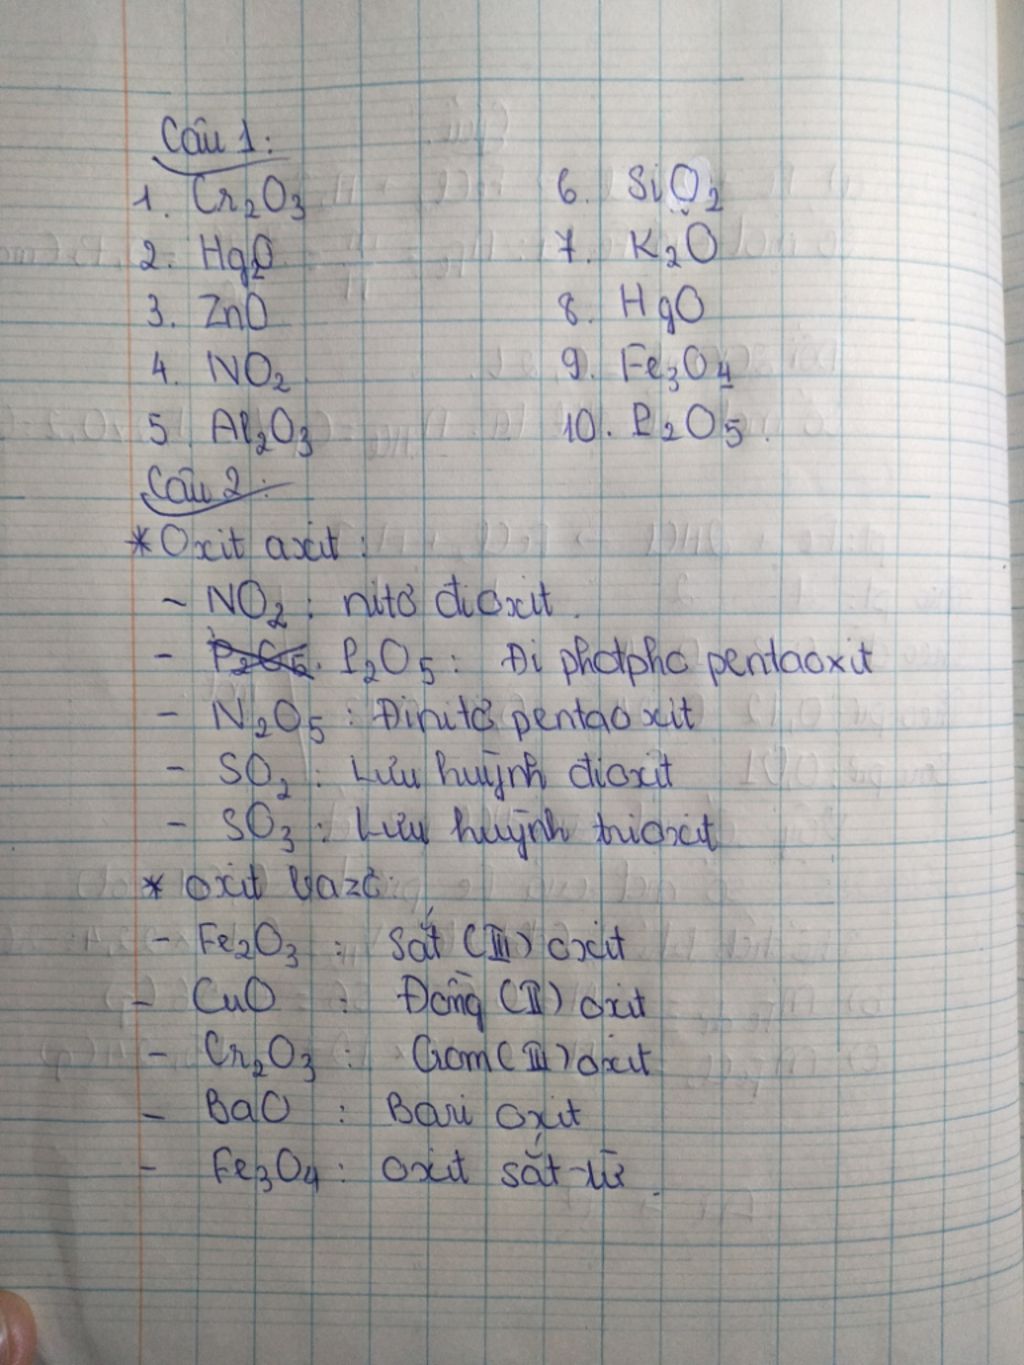 Câu 1:
1. Cr₂O₃
2. Hg₂O
3. ZnO
4. NO₂
5. Al₂O₃
6. SiO₂
7. K₂O
8. HgO
9. Fe₃O₄
10. P₂O₅.
Câu 2:
* Oxit axit:
- NO₂: nitơ đioxit.
- P₂O₅: Đi photpho pentaoxit
- N₂O₅: Đinitơ pentaoxit
- SO₂: Lưu huỳnh đioxit
- SO₃: Lưu huỳnh trioxit
* oxit bazơ:
- Fe₂O₃: Sắt (III) oxit
- CuO: Đồng (II) oxit
- Cr₂O₃: Crom (III) oxit
- BaO: Bari oxit
- Fe₃O₄: oxit sắt từ.